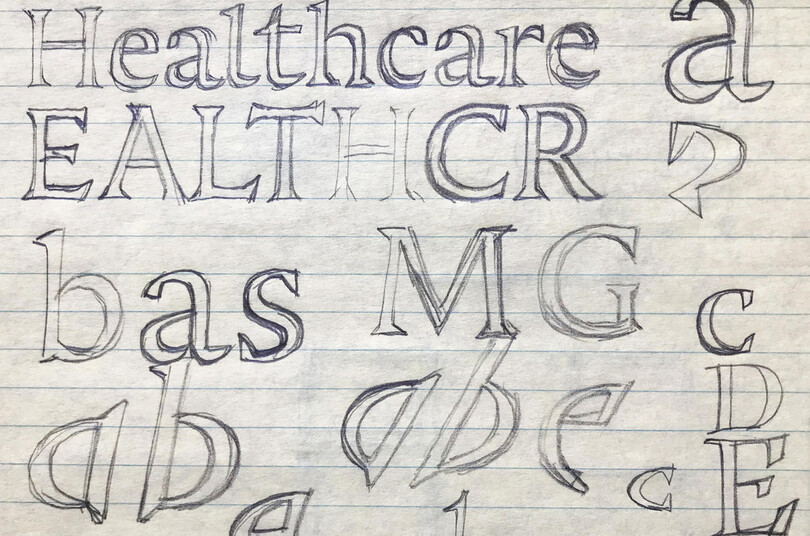 Healthcare a
EALTHCR
bas MG c
D
ab abe c E
e